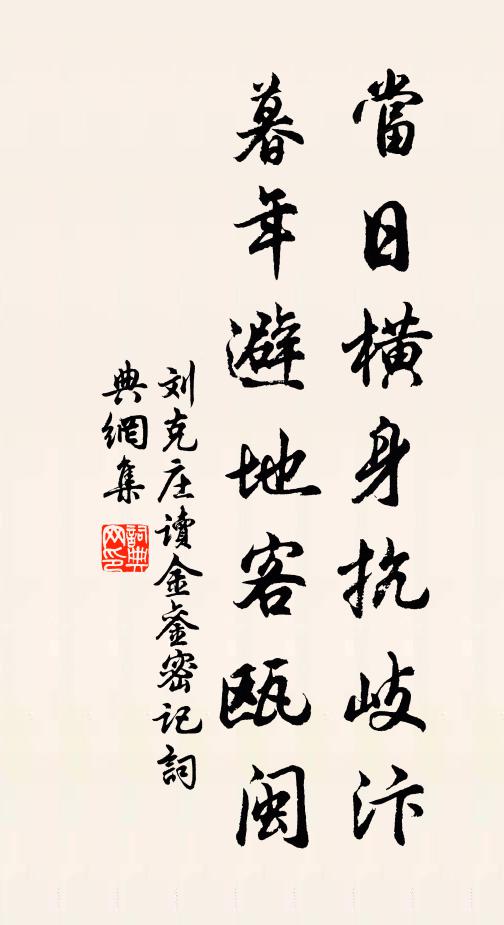 當日橫身抗岐汴
暮年避地客瓯闽
刘克庄读金銮密记詞
典網集
詞典网印